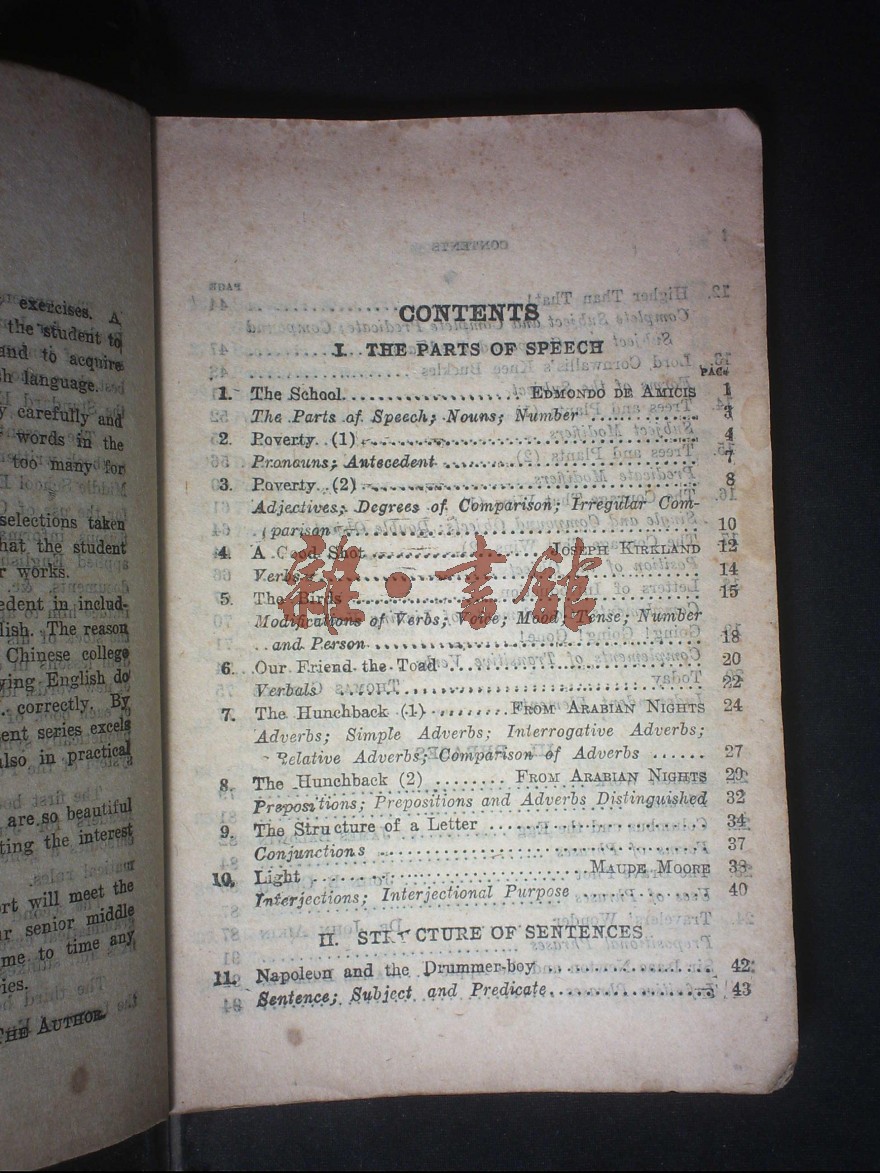 exercises. A
the student to
and to acquire
language.
carefully and
words in the
too many for
selections taken
that the student
works.
in includ-
The reason
Chinese college
English do
correctly. By
series excels
also in practical
are so beautiful
the interest
will meet the
senior middle
to time any
THE AUTHOR
CONTENTS
I. THE PARTS OF SPEECH
PAGE
1. The School.................. EDMONDO DE AMICIS 1
The Parts of Speech; Nouns; Number ............ 3
2. Poverty (1) .................................... 4
Pronouns; Antecedent ........................... 7
3. Poverty (2) .................................... 8
Adjectives; Degrees of Comparison; Irregular Com-
parison ..................................... 10
4. A Good Shot .................. JOSEPH KIRKLAND 12
Verbs .......................................... 14
5. The Birds ...................................... 15
Modifications of Verbs; Voice; Mood; Tense; Number
and Person .................................. 18
6. Our Friend the Toad ............................ 20
Verbals ........................................ 22
7. The Hunchback (1) ........ FROM ARABIAN NIGHTS 24
Adverbs; Simple Adverbs; Interrogative Adverbs;
Relative Adverbs; Comparison of Adverbs ...... 27
8. The Hunchback (2) ........ FROM ARABIAN NIGHTS 29
Prepositions; Prepositions and Adverbs Distinguished 32
9. The Structure of a Letter ...................... 34
Conjunctions ................................... 37
10. Light ............................ MAUDE MOORE 38
Interjections; Interjectional Purpose .......... 40
II. STRUCTURE OF SENTENCES
11. Napoleon and the Drummer-boy .................. 42
Sentence; Subject and Predicate................. 43
雜·書館